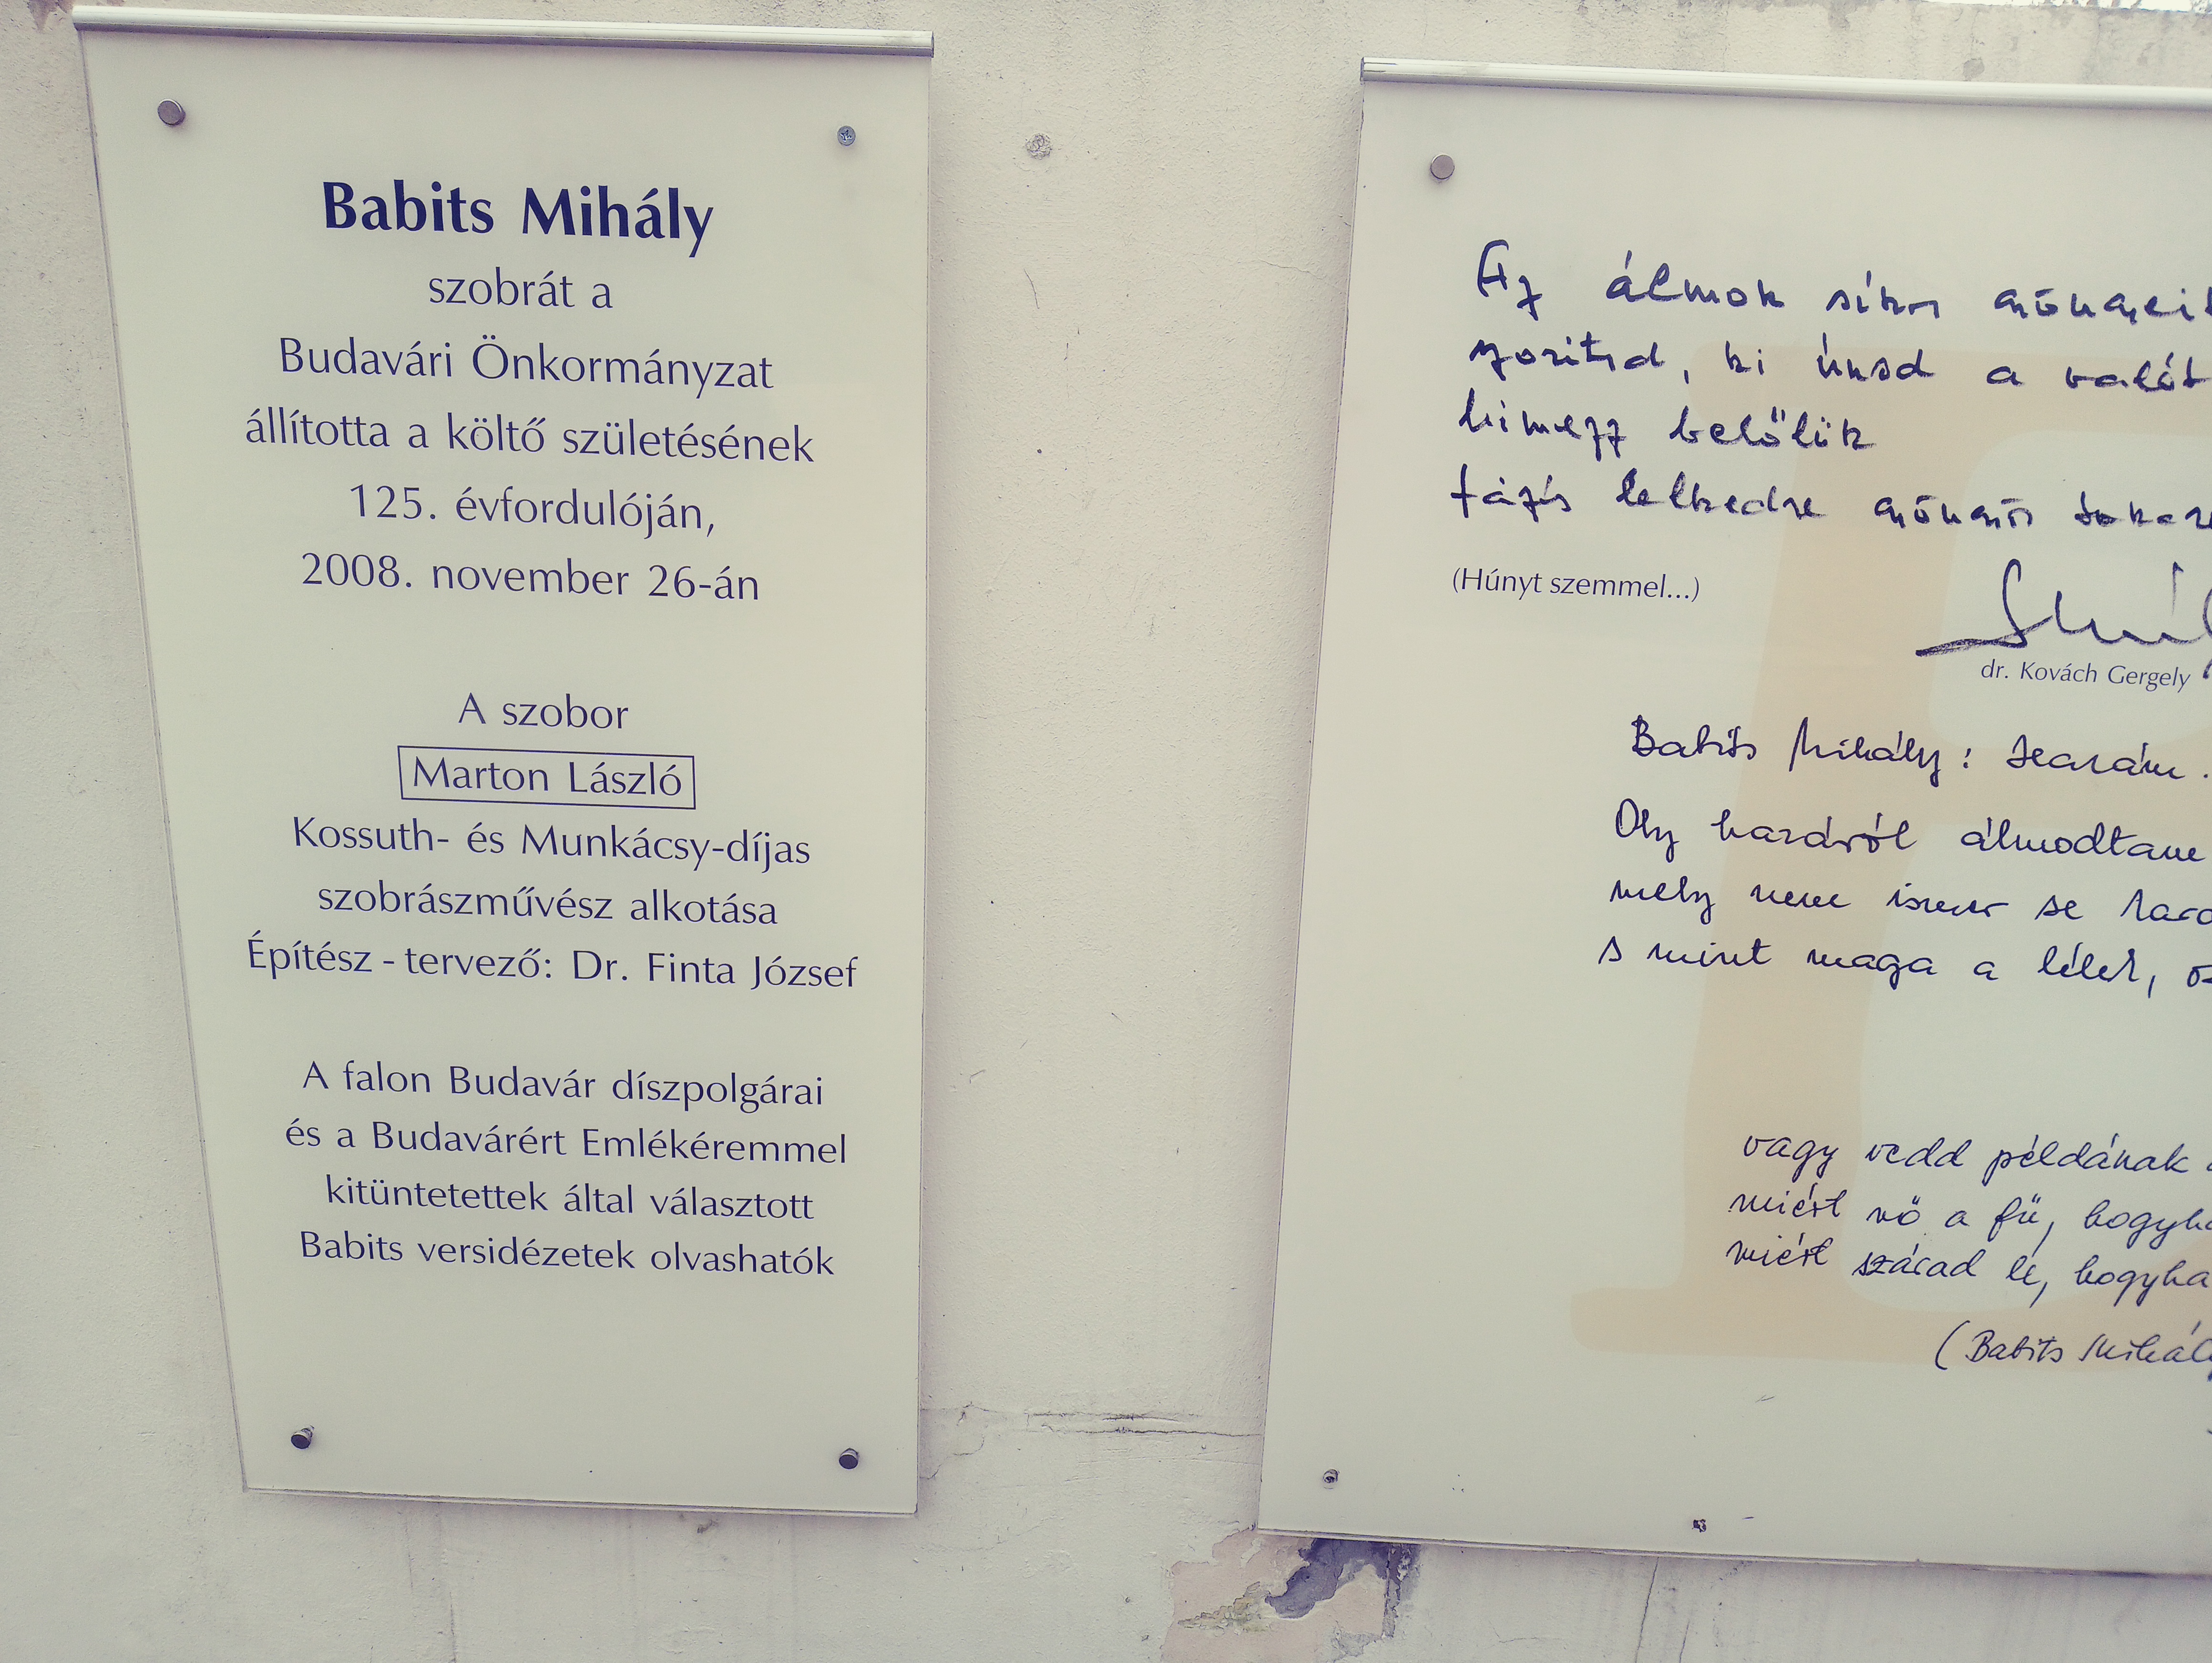 Babits Mihály
szobrát a
Budavári Önkormányzat
állította a költő születésének
125. évfordulóján,
2008. november 26-án
A szobor
Marton László
Kossuth- és Munkácsy-díjas
szobrászművész alkotása
Építész - tervező: Dr. Finta József
A falon Budavár díszpolgárai
és a Budavárért Emlékéremmel
kitüntetettek által választott
Babits versidézetek olvashatók
Az álmok síkos gyöngyeit
szorítsd, ki únsd a valót
hímezz belőlük
fázós lelkedre gyöngyös
(Húnyt szemmel...)
dr. Kovách Gergely
Babits Mihály:
Oly hazáról álmodtam
mely nem ismer se
s mint maga a lélek,
vagy vedd példának
miért nő a fű, hogyha
miért szárad le, hogyha
(Babits Mihály